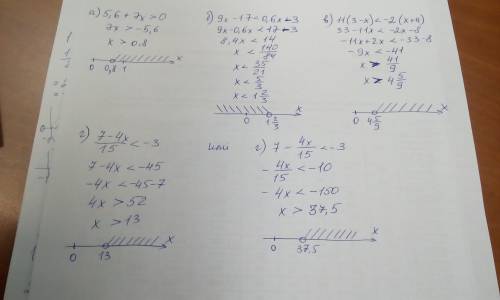 а) 5,6 + 7x > 0
7x > -5,6
x > 0.8
0 0,8 1 x
б) 9x - 17 < 0,6x - 3
9x - 0,6x < 17 - 3
8,4x < 14
x < 140/84
x < 35/21
x < 5/3
x < 1 2/3
0 1 2/3 x
в) 11(3-x) < -2(x+4)
33 - 11x < -2x - 8
-11x + 2x < -33 - 8
-9x < -41
x > 41/9
x > 4 5/9
0 4 5/9 x
г) (7-4x)/15 < -3
7 - 4x < -45
-4x < -45 - 7
4x > 52
x > 13
0 13 x
или
г) 7 - 4x/15 < -3
- 4x/15 < -10
- 4x < -150
x > 37,5
0 37,5 x